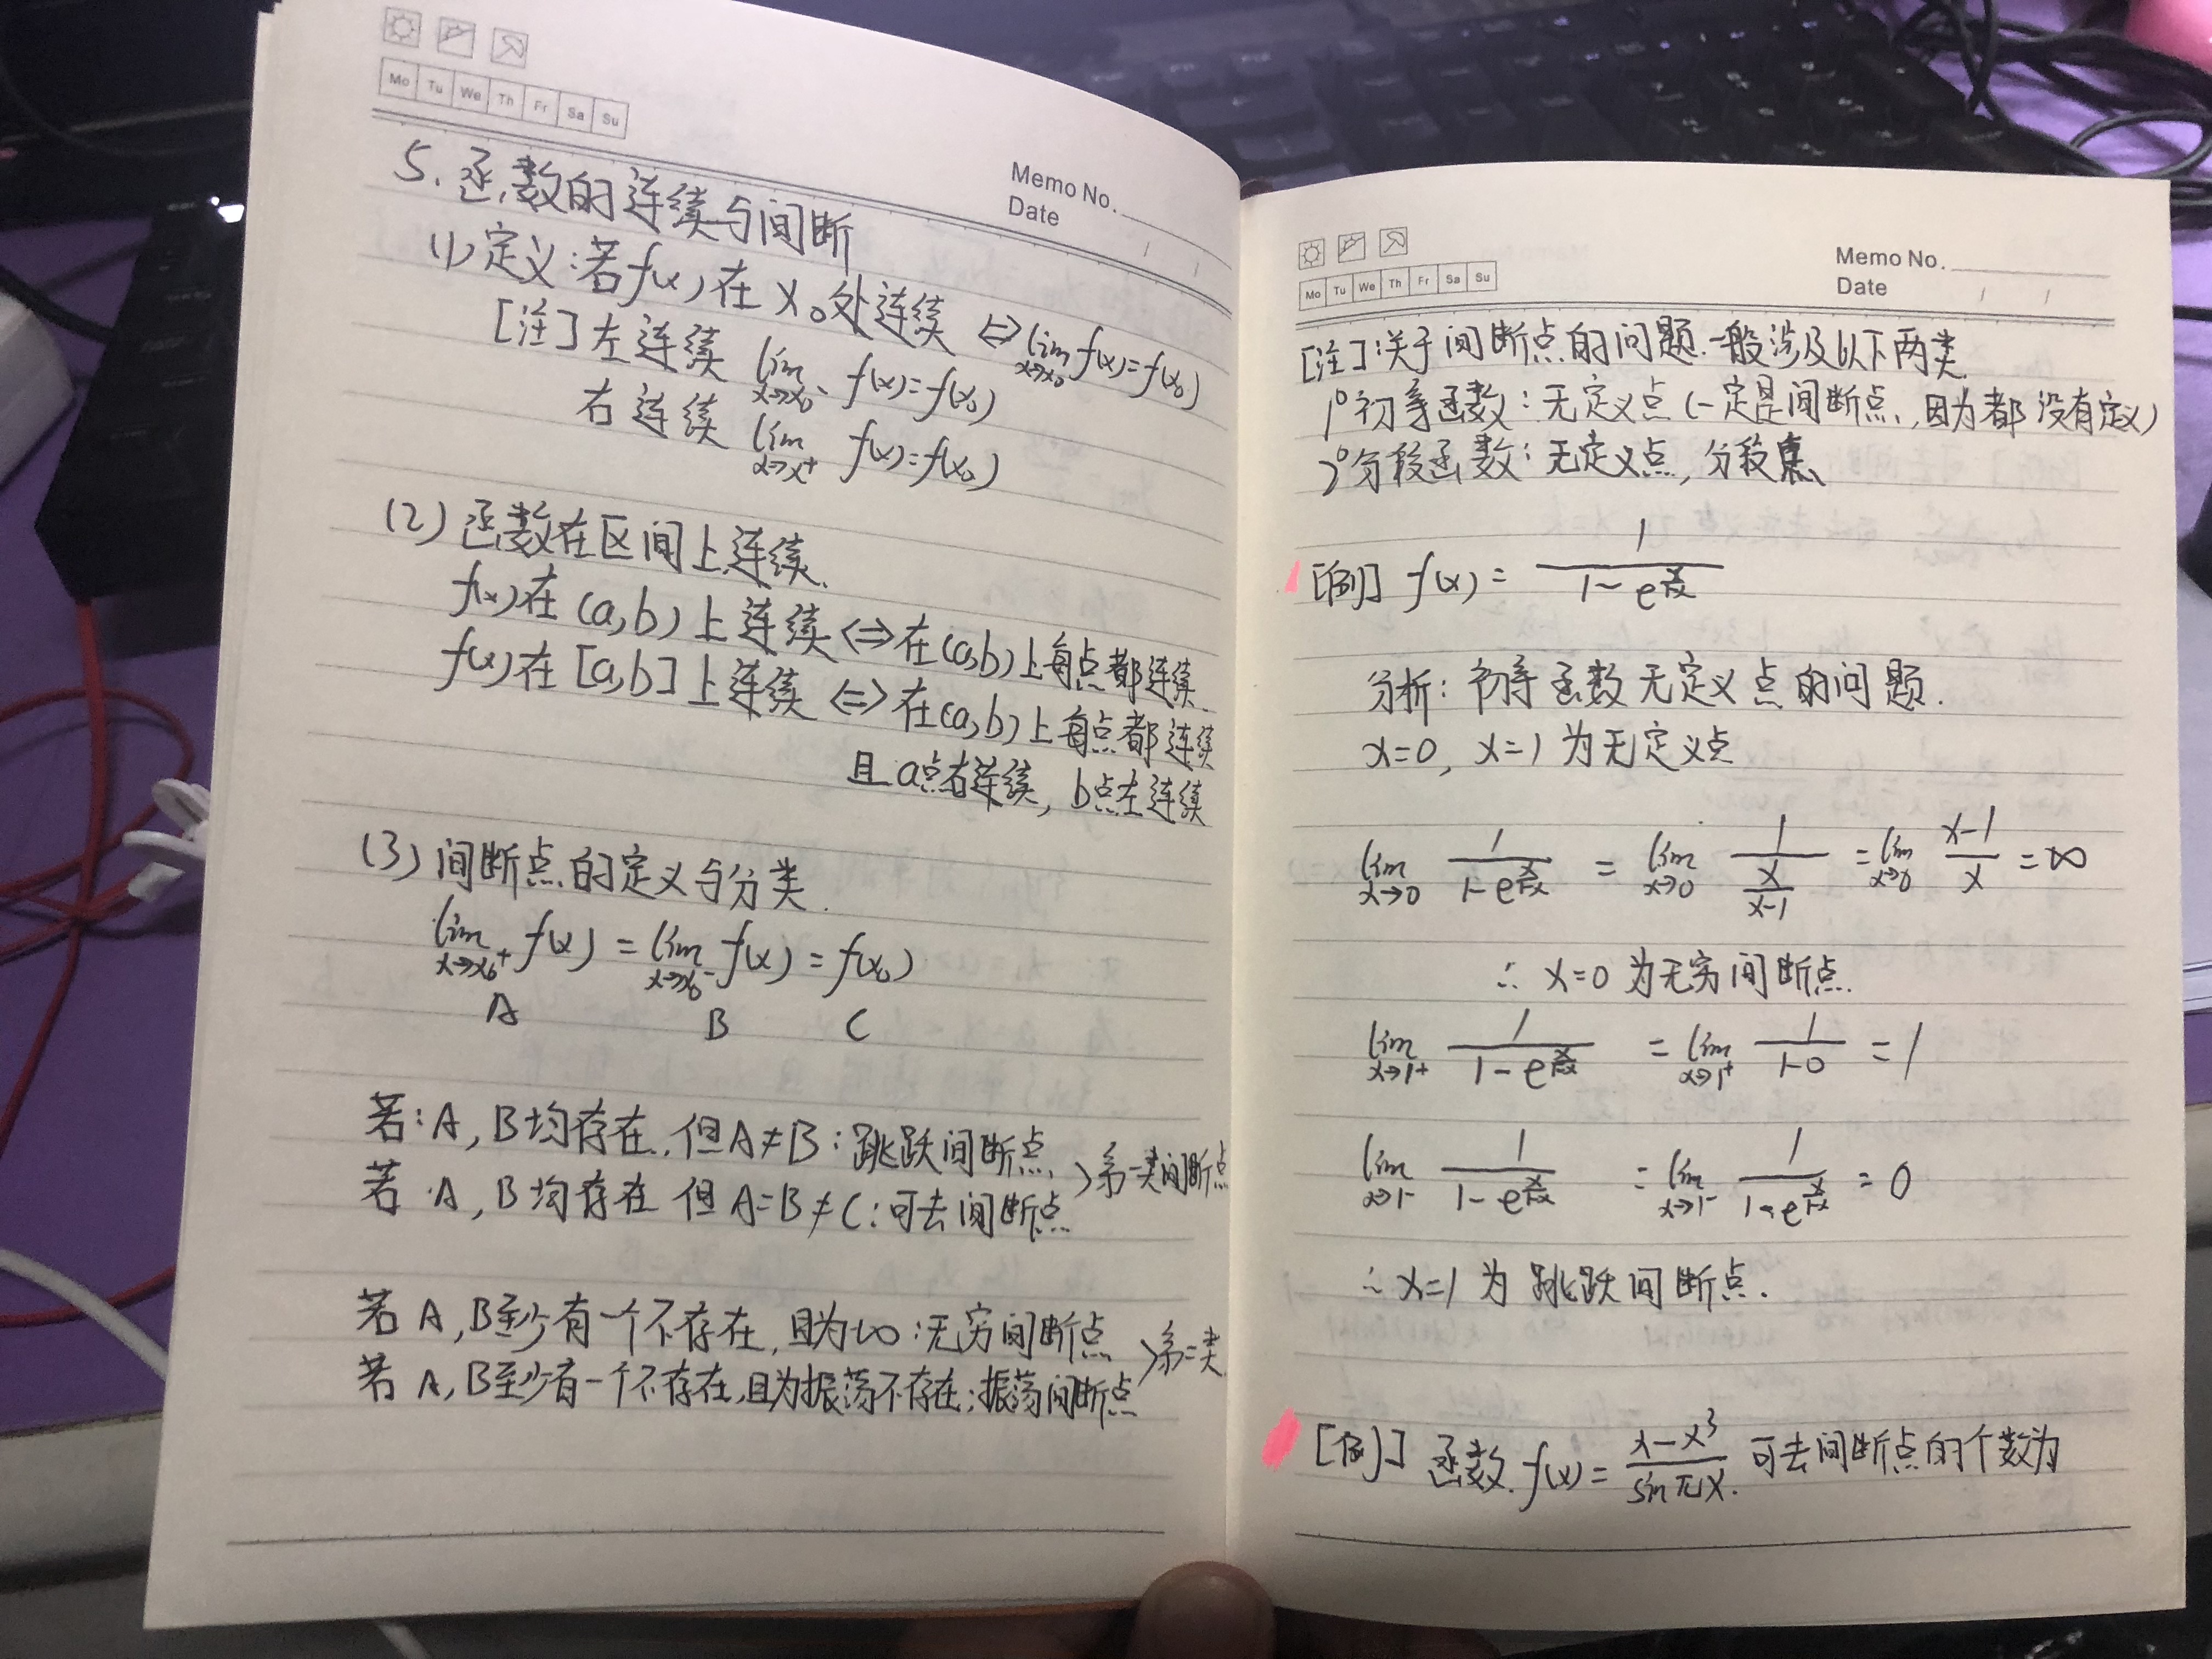 Mo Tu We Th Fr Sa Su
Memo No.
Date / /
5. 函数的连续与间断
(1) 定义:若f(x)在x₀处连续 ⇔ lim x→x₀ f(x)=f(x₀)
[注]左连续 lim x→x₀⁻ f(x)=f(x₀)
右连续 lim x→x⁺ f(x)=f(x₀)
(2) 函数在区间上连续.
f(x)在(a,b)上连续⇔在(a,b)上每点都连续.
f(x)在[a,b]上连续⇔在(a,b)上每点都连续
且a点右连续, b点左连续
(3) 间断点的定义与分类.
lim x→x₀⁺ f(x) = lim x→x₀⁻ f(x) = f(x₀)
A B C
若:A, B均存在, 但A≠B:跳跃间断点
若 A, B均存在 但A=B≠C:可去间断点
>第一类间断点
若A, B至少有一个不存在, 且为∞:无穷间断点
若A, B至少有一个不存在, 且为振荡不存在:振荡间断点
>第二类
Mo Tu We Th Fr Sa Su
Memo No.
Date / /
[注]:关于间断点的问题.一般涉及以下两类.
1°初等函数:无定义点(一定是间断点,因为都没有定义)
2°分段函数:无定义点,分段点
[例] f(x) = 1/(1-e^(x/(1-x)))
分析:初等函数无定义点的问题.
x=0, x=1为无定义点
lim x→0 1/(1-e^(x/(1-x))) = lim x→0 1/(x/(x-1)) = lim x→0 (x-1)/x = ∞
∴ x=0 为无穷间断点.
lim x→1+ 1/(1-e^(x/(1-x))) = lim x→1⁺ 1/(1-0) = 1
lim x→1- 1/(1-e^(x/(1-x))) = lim x→1⁻ 1/(1-e^(x/(1-x))) = 0
∴ x=1 为 跳跃间断点.
[例] 函数 f(x) = (x-x³)/(sinπx). 可去间断点的个数为